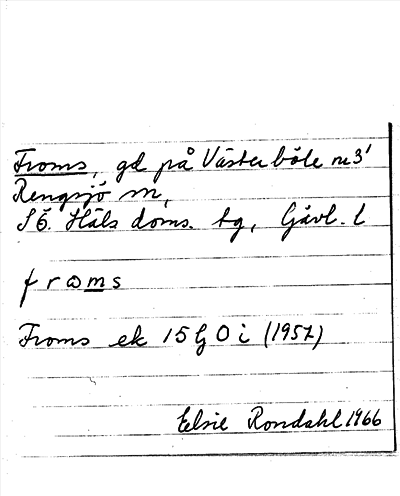 Froms, gd på Västerböle nr 3¹
Rengsjö sn,
SÖ. Häls doms. tg, Gävl. l
f r ω m s
Froms ek 15 G O i (1957)
Elsie Rondahl 1966